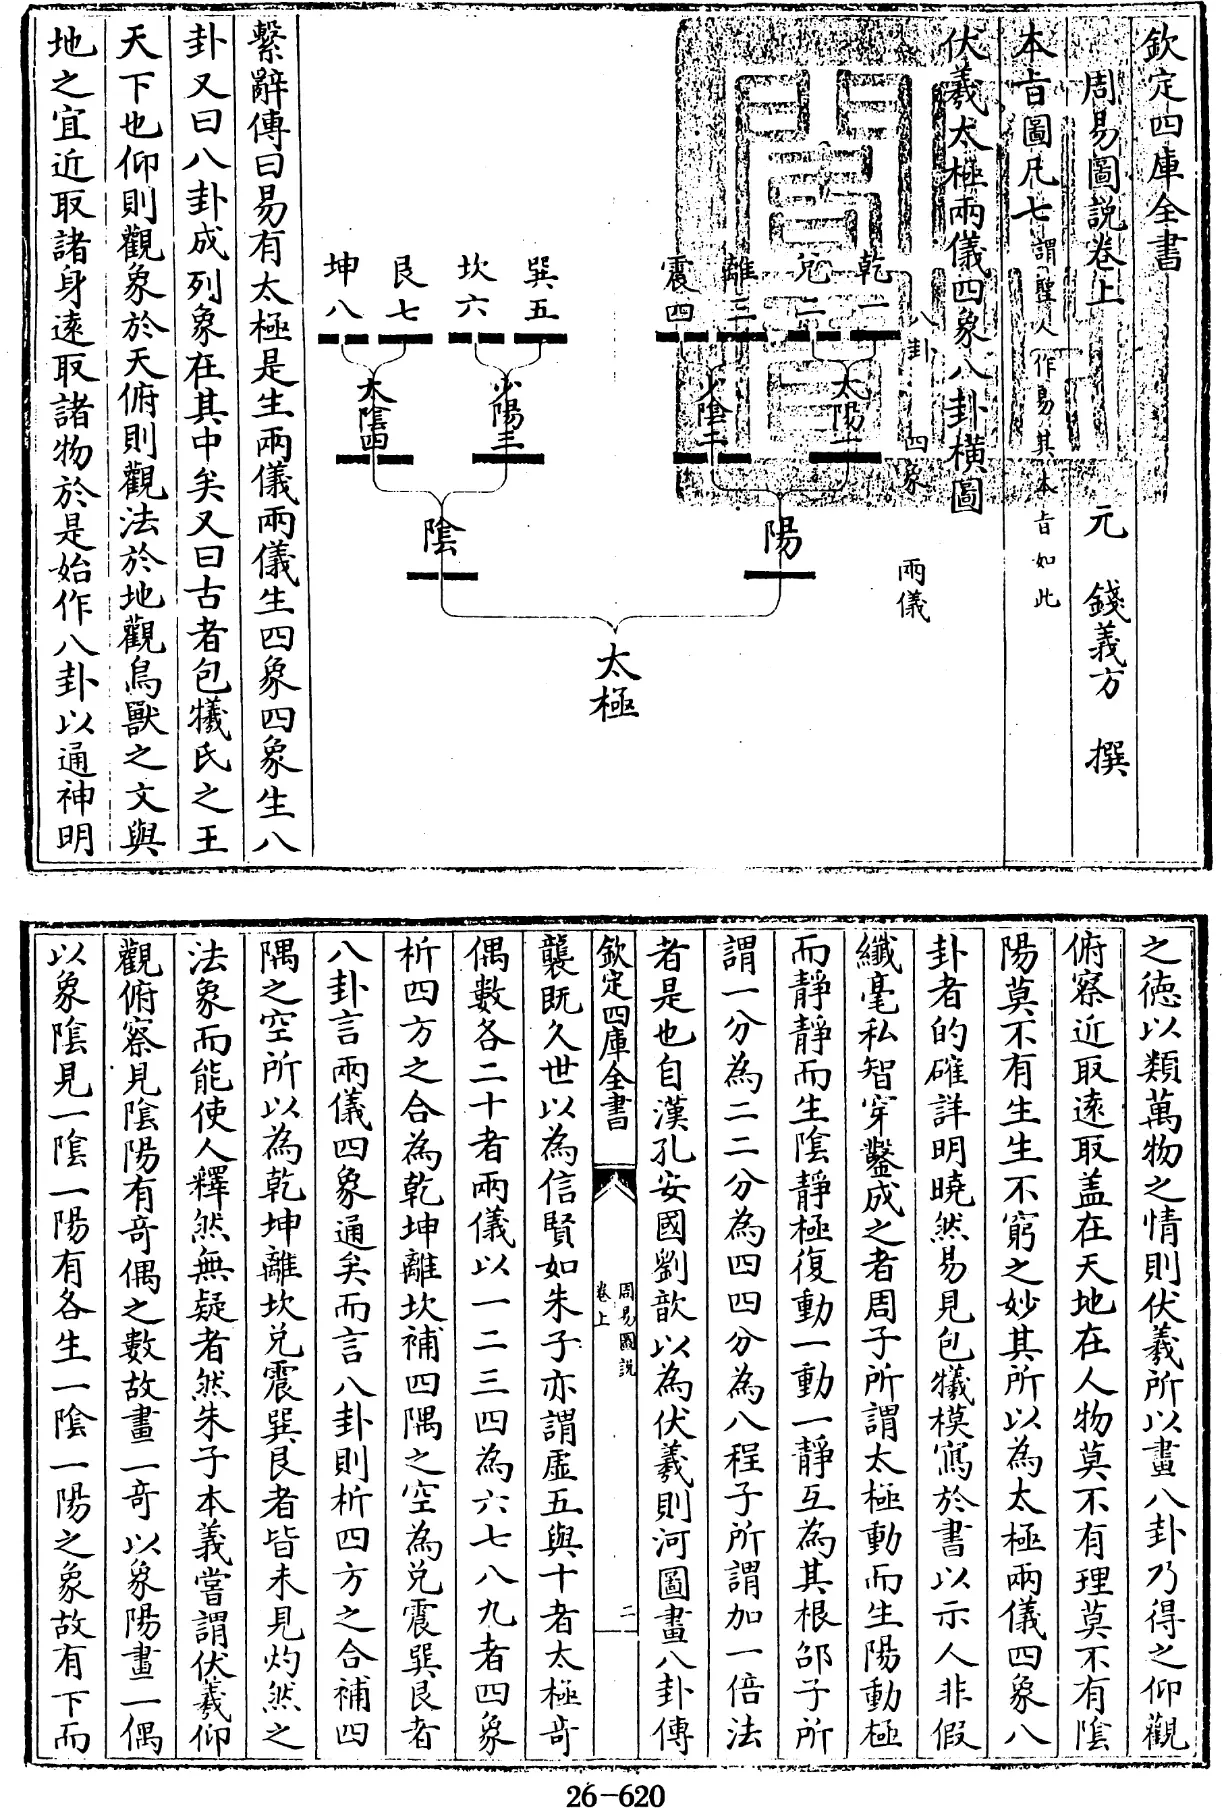 欽定四庫全書
周易圖說卷上
元 錢義方 撰
本旨圖凡七謂聖人作易其本旨如此
伏羲太極兩儀四象八卦橫圖
八卦
四象
兩儀
乾一
兌二
離三
震四
巽五
坎六
艮七
坤八
太陽一
少陰二
少陽三
太陰四
陽
陰
太極
繫辭傳曰易有太極是生兩儀兩儀生四象四象生八
卦又曰八卦成列象在其中矣又曰古者包犧氏之王
天下也仰則觀象於天俯則觀法於地觀鳥獸之文與
地之宜近取諸身遠取諸物於是始作八卦以通神明
之德以類萬物之情則伏羲所以畫八卦乃得之仰觀
俯察近取遠取蓋在天地在人物莫不有理莫不有陰
陽莫不有生生不窮之妙其所以為太極兩儀四象八
卦者的確詳明曉然易見包犧模寫於書以示人非假
纎毫私智穿鑿成之者周子所謂太極動而生陽動極
而靜靜而生陰靜極復動一動一靜互為其根邵子所
謂一分為二二分為四四分為八程子所謂加一倍法
者是也自漢孔安國劉歆以為伏羲則河圖畫八卦傳
欽定四庫全書
周易圖說
卷上
二
襲既久世以為信賢如朱子亦謂虛五與十者太極奇
偶數各二十者兩儀以一二三四為六七八九者四象
析四方之合為乾坤離坎補四隅之空為兌震巽艮者
八卦言兩儀四象通矣而言八卦則析四方之合補四
隅之空所以為乾坤離坎兌震巽艮者皆未見灼然之
法象而能使人釋然無疑者然朱子本義嘗謂伏羲仰
觀俯察見陰陽有奇偶之數故畫一奇以象陽畫一偶
以象陰見一陰一陽有各生一陰一陽之象故有下而
26-620